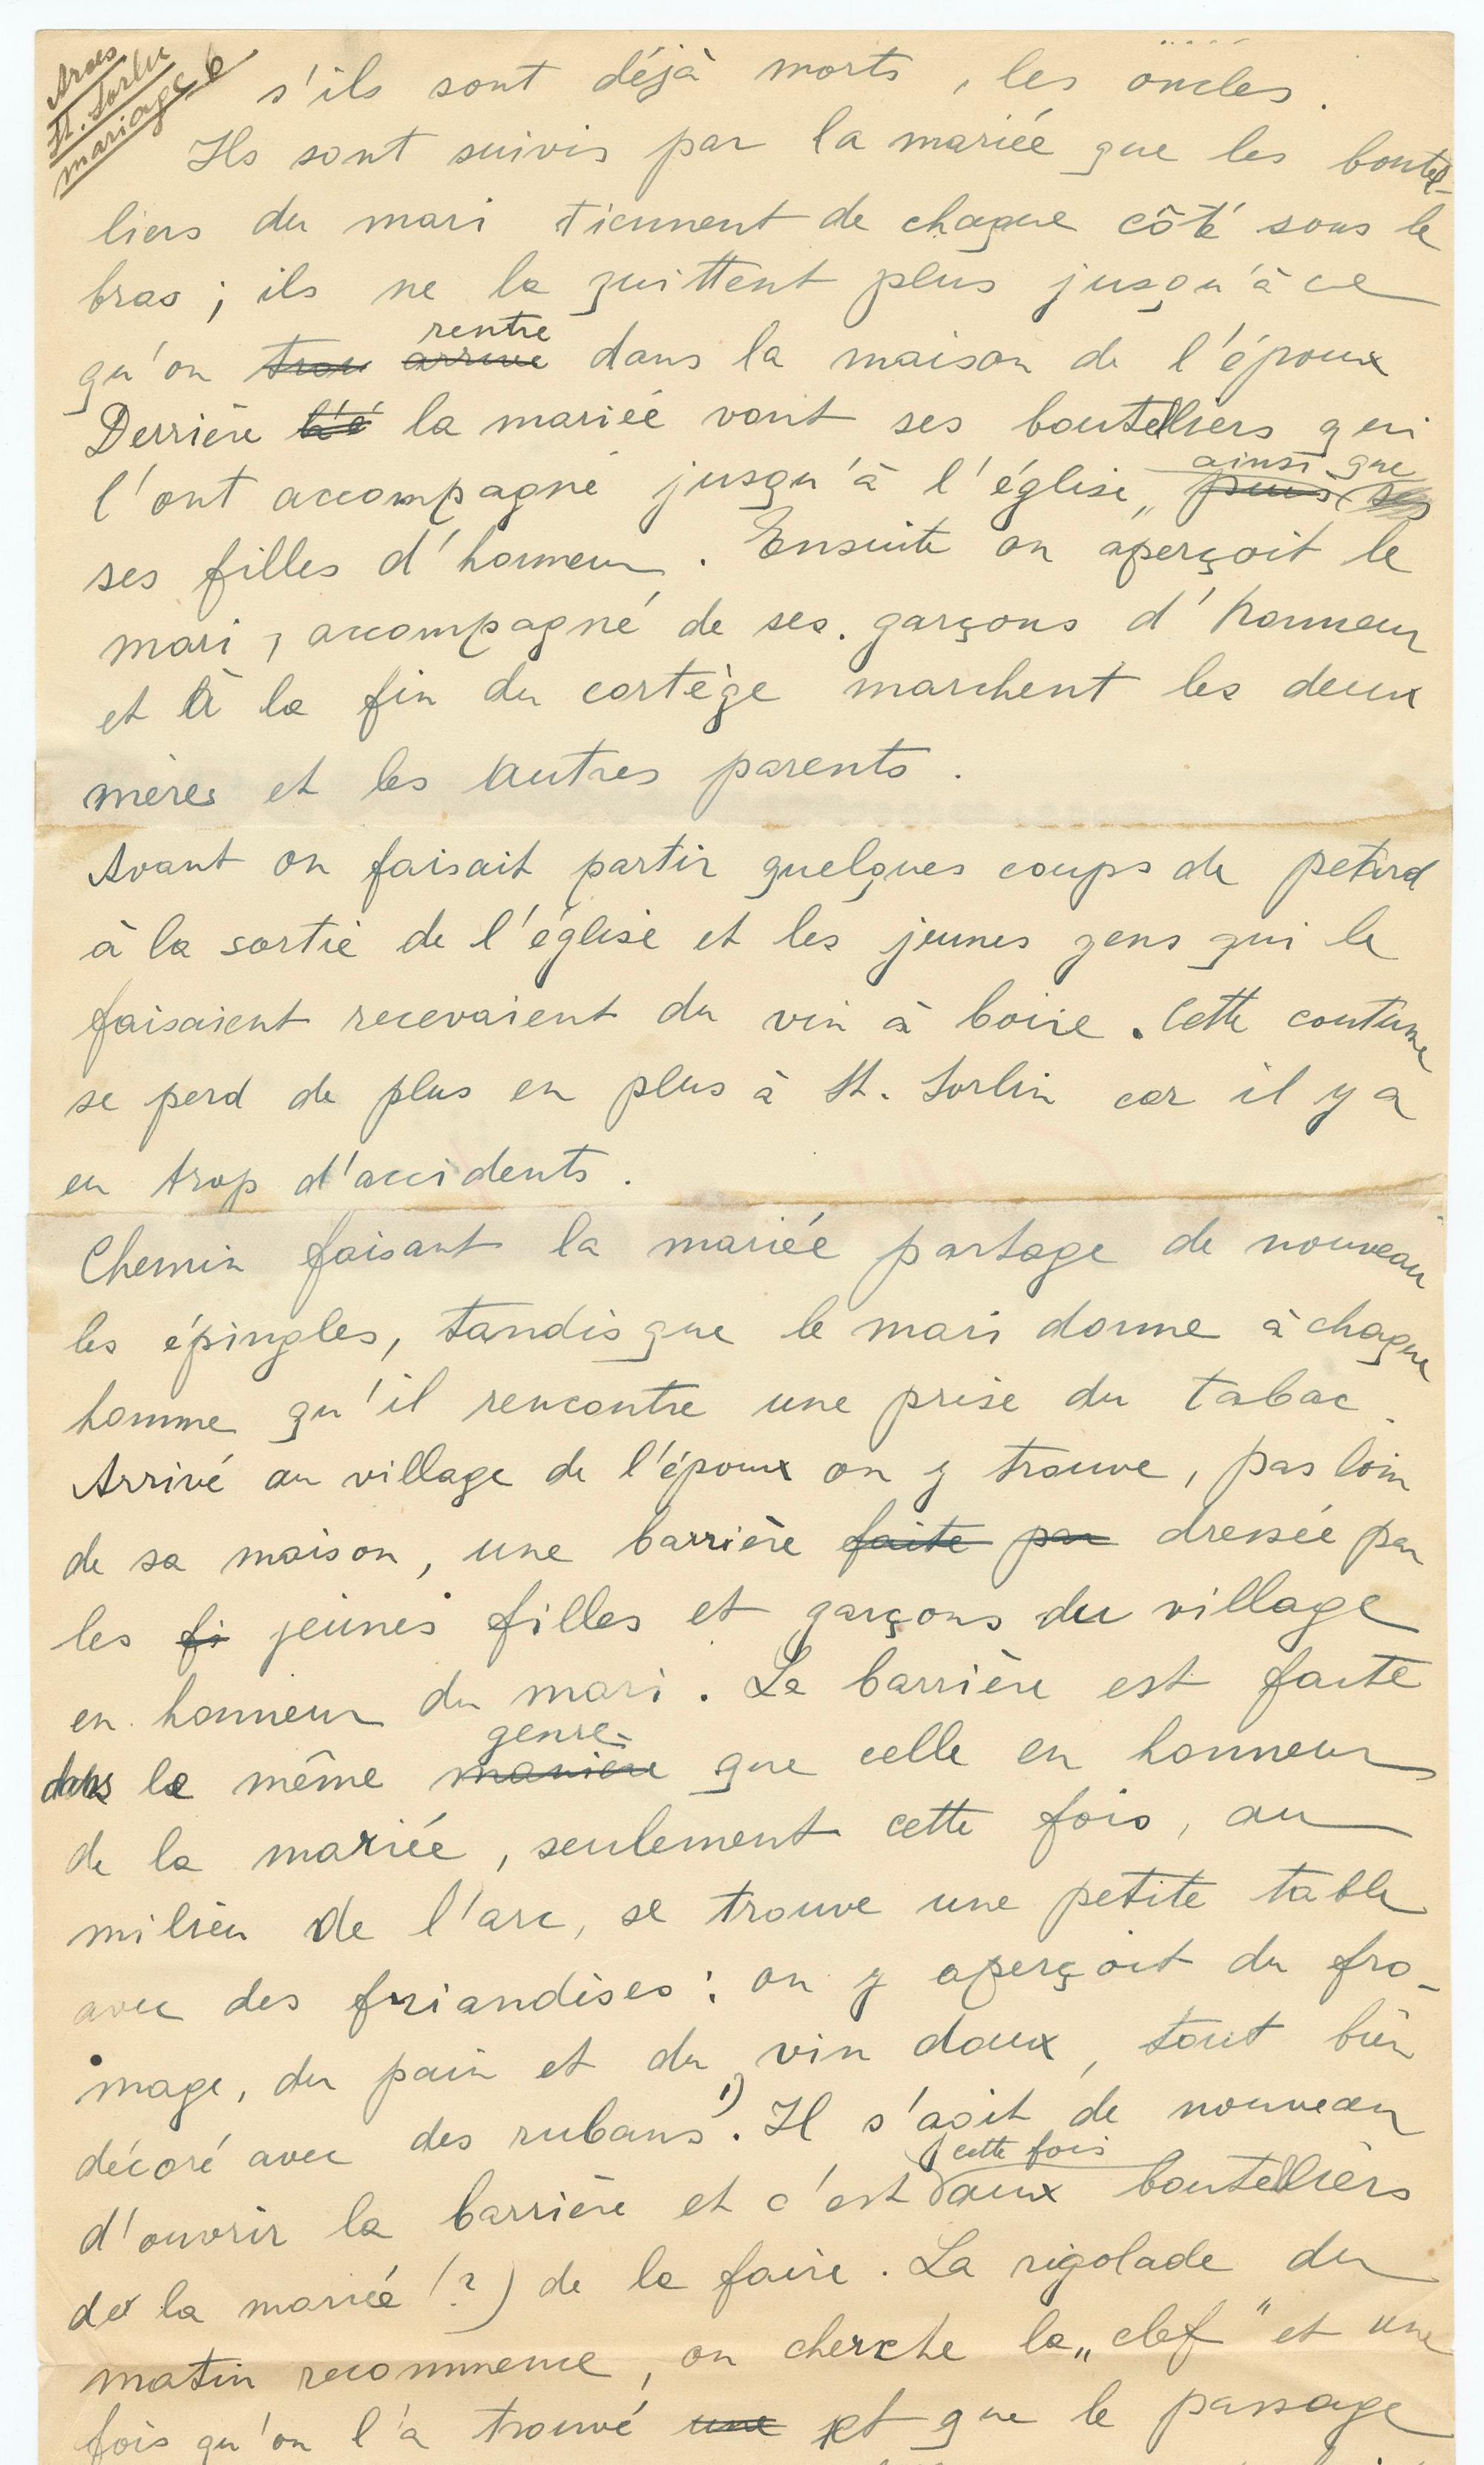 Arves
St. Sorlin
mariage 6
s'ils sont déjà morts, les oncles.
Ils sont suivis par la mariée que les boutel-
liers du mari tiennent de chaque côté sous le
bras ; ils ne la quittent plus jusqu'à ce
qu'on trou arrive rentre dans la maison de l'époux
Derrière la mariée vont ses boutelliers qui
l'ont accompagné jusqu'à l'église, puis ses ainsi que
ses filles d'honneur. Ensuite on aperçoit le
mari, accompagné de ses garçons d'honneur
et à la fin du cortège marchent les deux
mères et les autres parents.
Avant on faisait partir quelques coups de petard
à la sortie de l'église et les jeunes gens qui le
faisaient recevaient du vin à boire. Cette coutume
se perd de plus en plus à St. Sorlin car il y a
eu trop d'accidents.
Chemin faisant la mariée partage de nouveau
les épingles, tandis que le mari donne à chaque
homme qu'il rencontre une prise du tabac.
Arrivé au village de l'époux on y trouve, pas loin
de sa maison, une barrière faite par dressée par
les fi jeunes filles et garçons du village
en honneur du mari. La barrière est faite
dans le même manière genre que celle en honneur
de la mariée, seulement cette fois, au
milieu de l'arc, se trouve une petite table
avec des friandises : on y aperçoit du fro-
mage, du pain et du vin doux, tout bien
décoré avec des rubans 1). Il s'agit de nouveau
d'ouvrir la barrière et c'est cette fois aux boutelliers
de la mariée (?) de le faire. La rigolade du
matin recommence, on cherche la „clef" et une
fois qu'on l'a trouvé une et que le passage